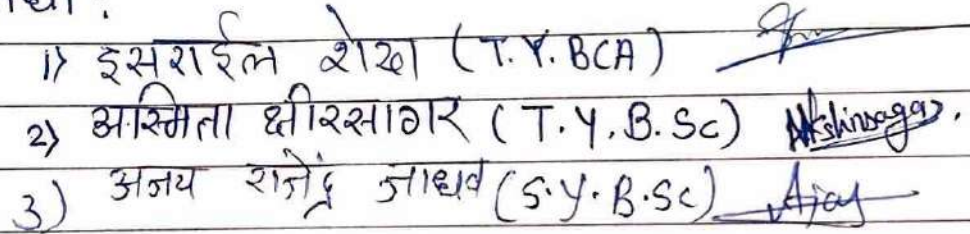 1) इसराईल शेख (T.Y.BCA)
2) अस्मिता क्षीरसागर (T.Y.B.Sc) AKshirsagar.
3) अजय राजेंद्र जाधव (S.Y.B.Sc) Ajay